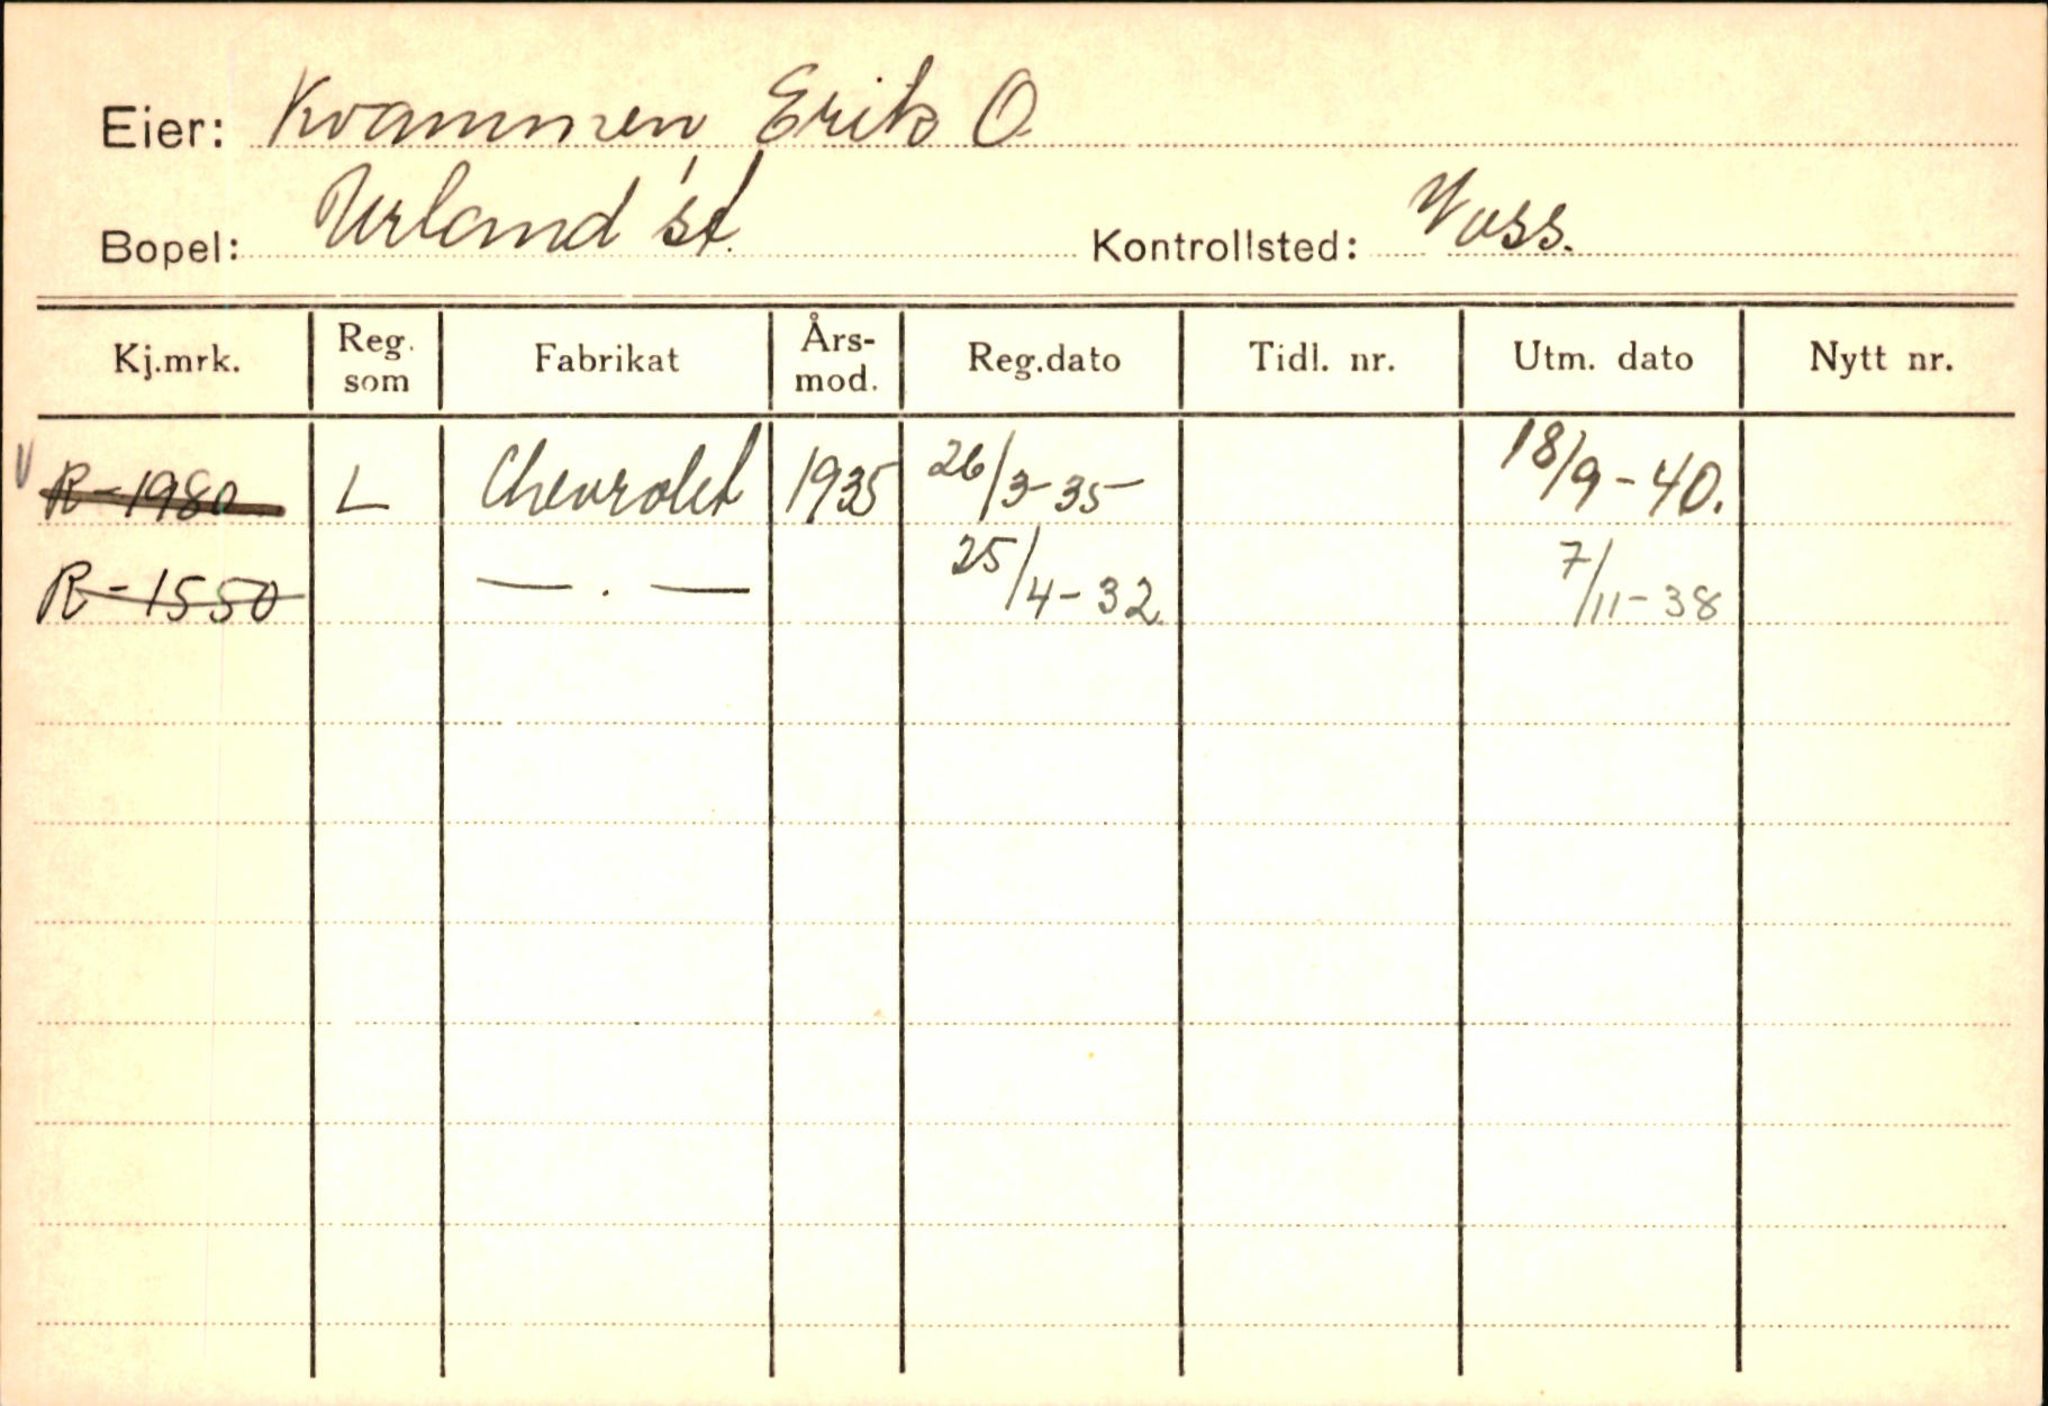 Eier: Kvammen, Erik O.
Bopel: Urland st. Kontrollsted: Voss.
Kj.mrk. Reg. som Fabrikat Års-mod. Reg.dato Tidl. nr. Utm. dato Nytt nr.
V R-1980 L Chevrolet 1935 26/3-35 18/9-40.
R-1550 — . — 25/4-32 7/11-38